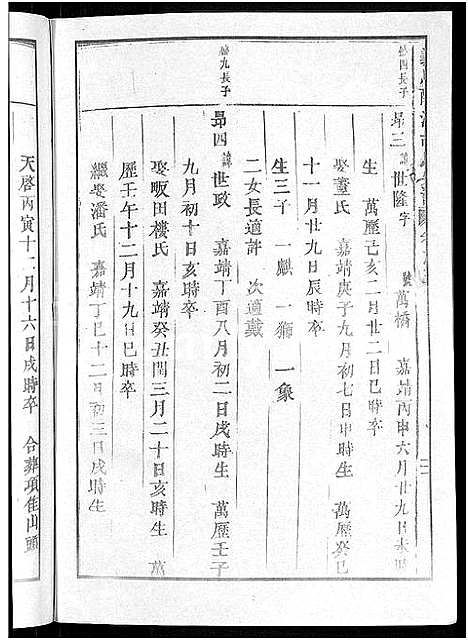 鏕四長子
昴三 諱世隆 字 號萬橋 嘉靖丙申六月廿九日未時
生 萬歷己亥二月廿二日巳時卒
娶董氏 嘉靖庚子九月初七日申時生 萬歷癸巳
十一月廿九日辰時卒
生三子 一麒 一獅 一象
二女長適許 次適戴
九長子
昴四 諱世政 嘉靖丁酉八月初二日戌時生 萬歷壬子
九月初十日亥時卒
娶畈田樓氏 嘉靖癸丑閏三月二十日亥時生 萬
歷壬午十二月十九日巳時卒
繼娶潘氏 嘉靖丁巳十二月初三日戌時生
天啓丙寅十二月十六日戌時卒 合葬項隹山頭